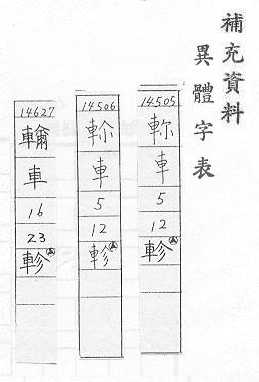 補充資料
異體字表
14505
車
5
12
軫
14506
車
5
12
軫
14627
車
16
23
軫